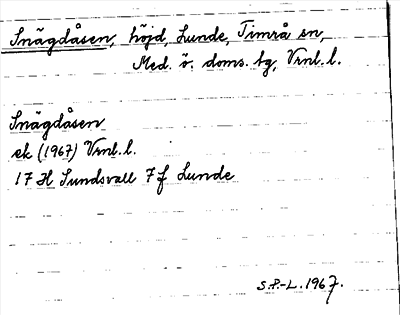 Snägdåsen, höjd, Lunde, Timrå sn,
Med. ö. doms. tg, Vrnl. l.
Snägdåsen
ek (1967) Vrnl. l.
17 H Sundsvall 7 f Lunde
S.P-L. 1967.